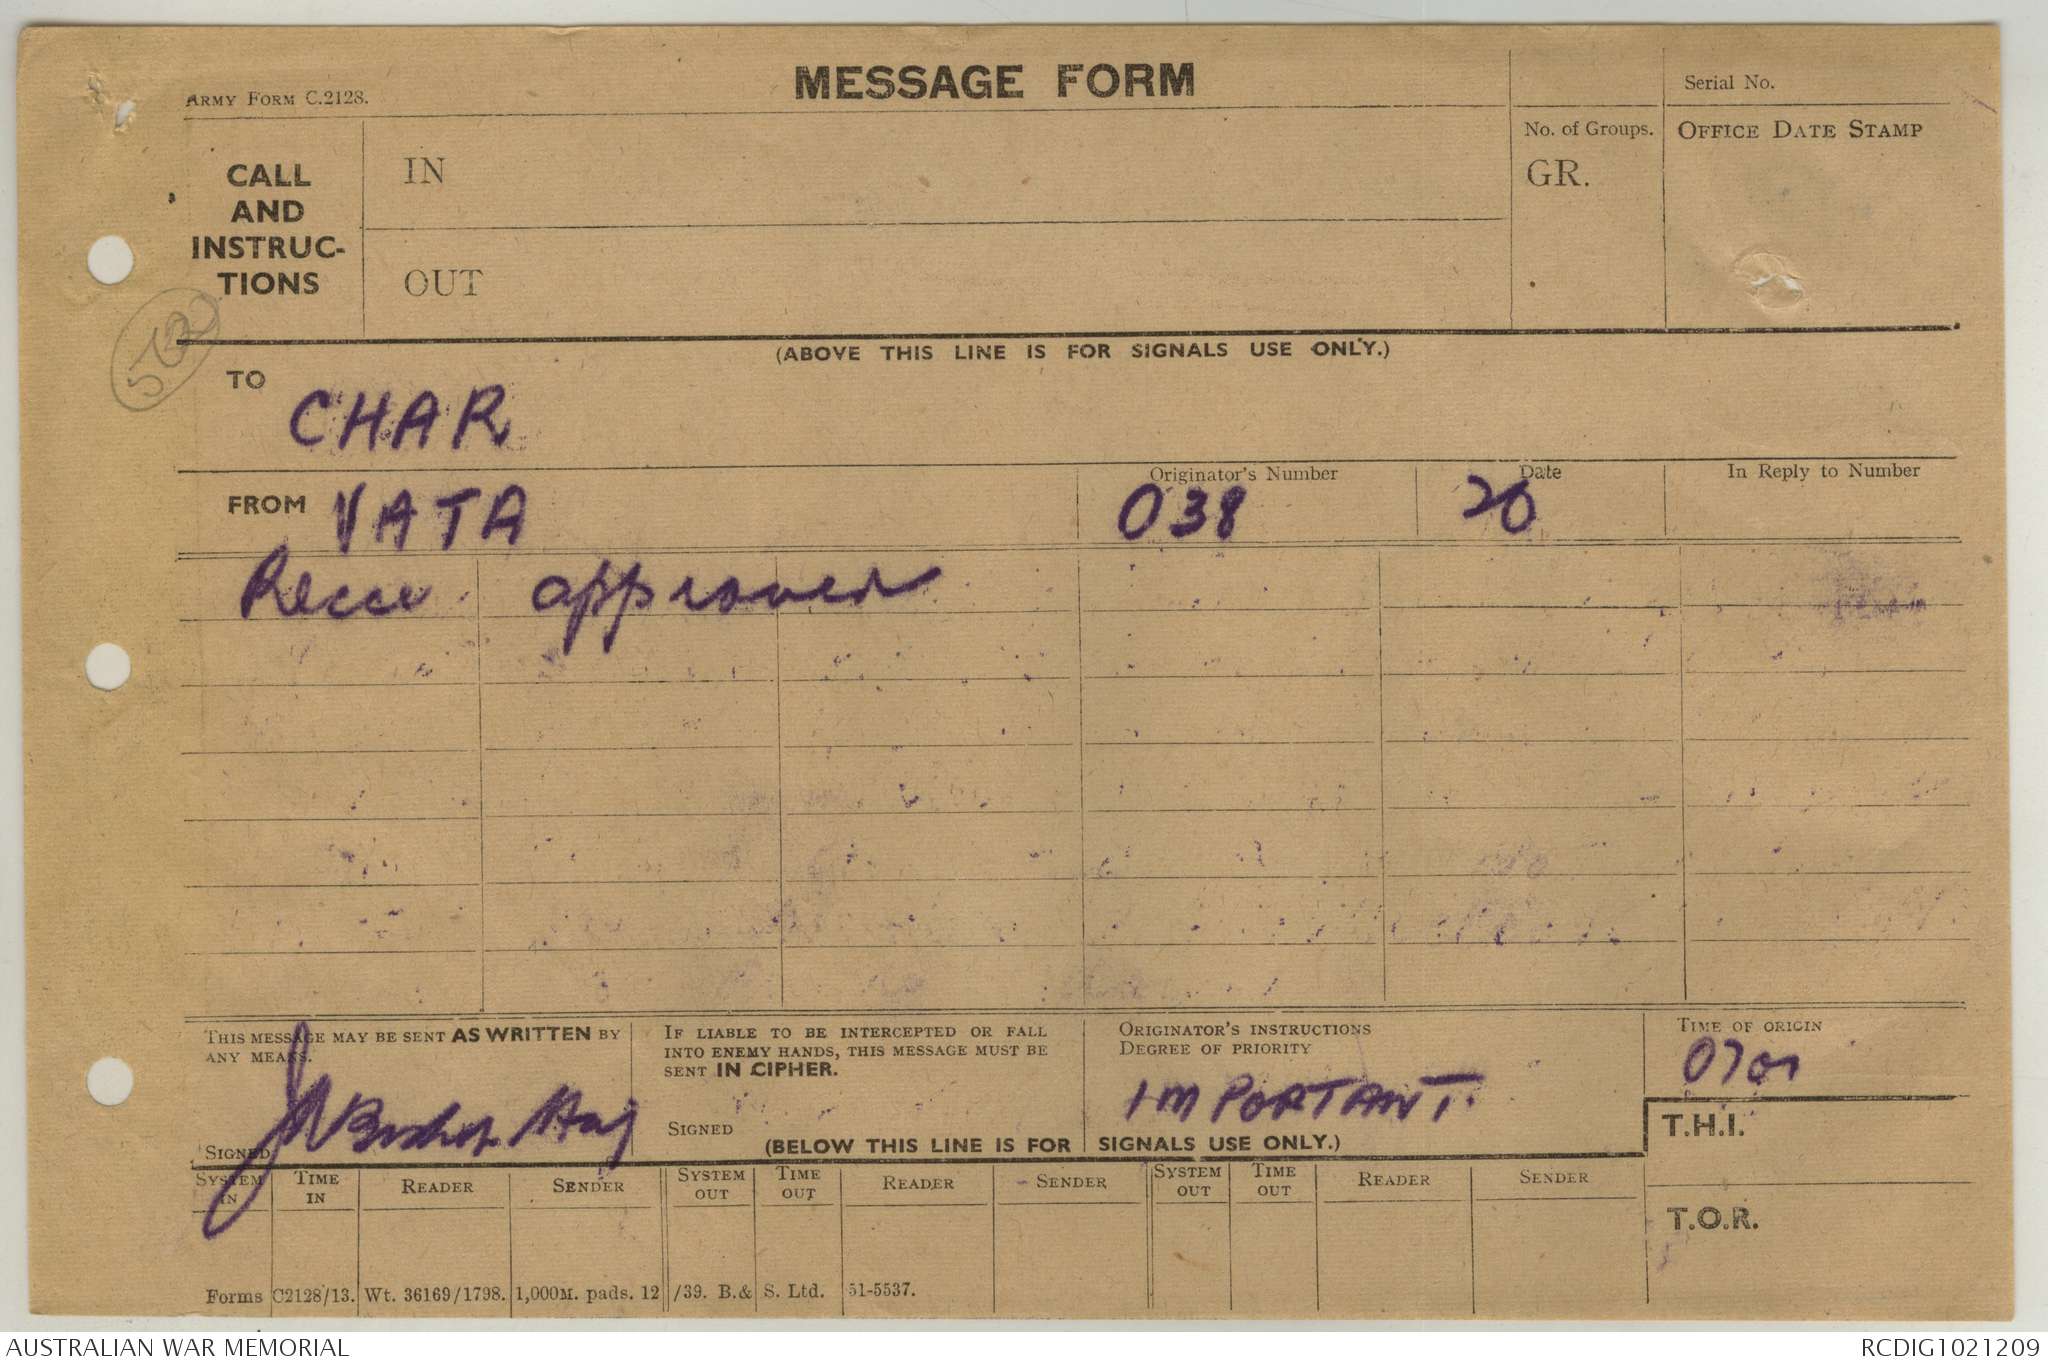 ARMY FORM C.2128.
MESSAGE FORM
Serial No.
CALL AND INSTRUC-TIONS
IN
OUT
No. of Groups.
GR.
OFFICE DATE STAMP
(ABOVE THIS LINE IS FOR SIGNALS USE ONLY.)
TO CHAR
FROM VATA
Originator's Number
038
Date
20
In Reply to Number
Recce approved
THIS MESSAGE MAY BE SENT AS WRITTEN BY
ANY MEANS.
SIGNED
IF LIABLE TO BE INTERCEPTED OR FALL
INTO ENEMY HANDS, THIS MESSAGE MUST BE
SENT IN CIPHER.
SIGNED
ORIGINATOR'S INSTRUCTIONS
DEGREE OF PRIORITY
IMPORTANT.
TIME OF ORIGIN
0701
T.H.I.
T.O.R.
(BELOW THIS LINE IS FOR SIGNALS USE ONLY.)
SYSTEM IN TIME IN READER SENDER SYSTEM OUT TIME OUT READER SENDER SYSTEM OUT TIME OUT READER SENDER
Forms C2128/13. Wt. 36169/1798. 1,000M. pads. 12/39. B.& S. Ltd. 51-5537.
AUSTRALIAN WAR MEMORIAL
RCDIG1021209